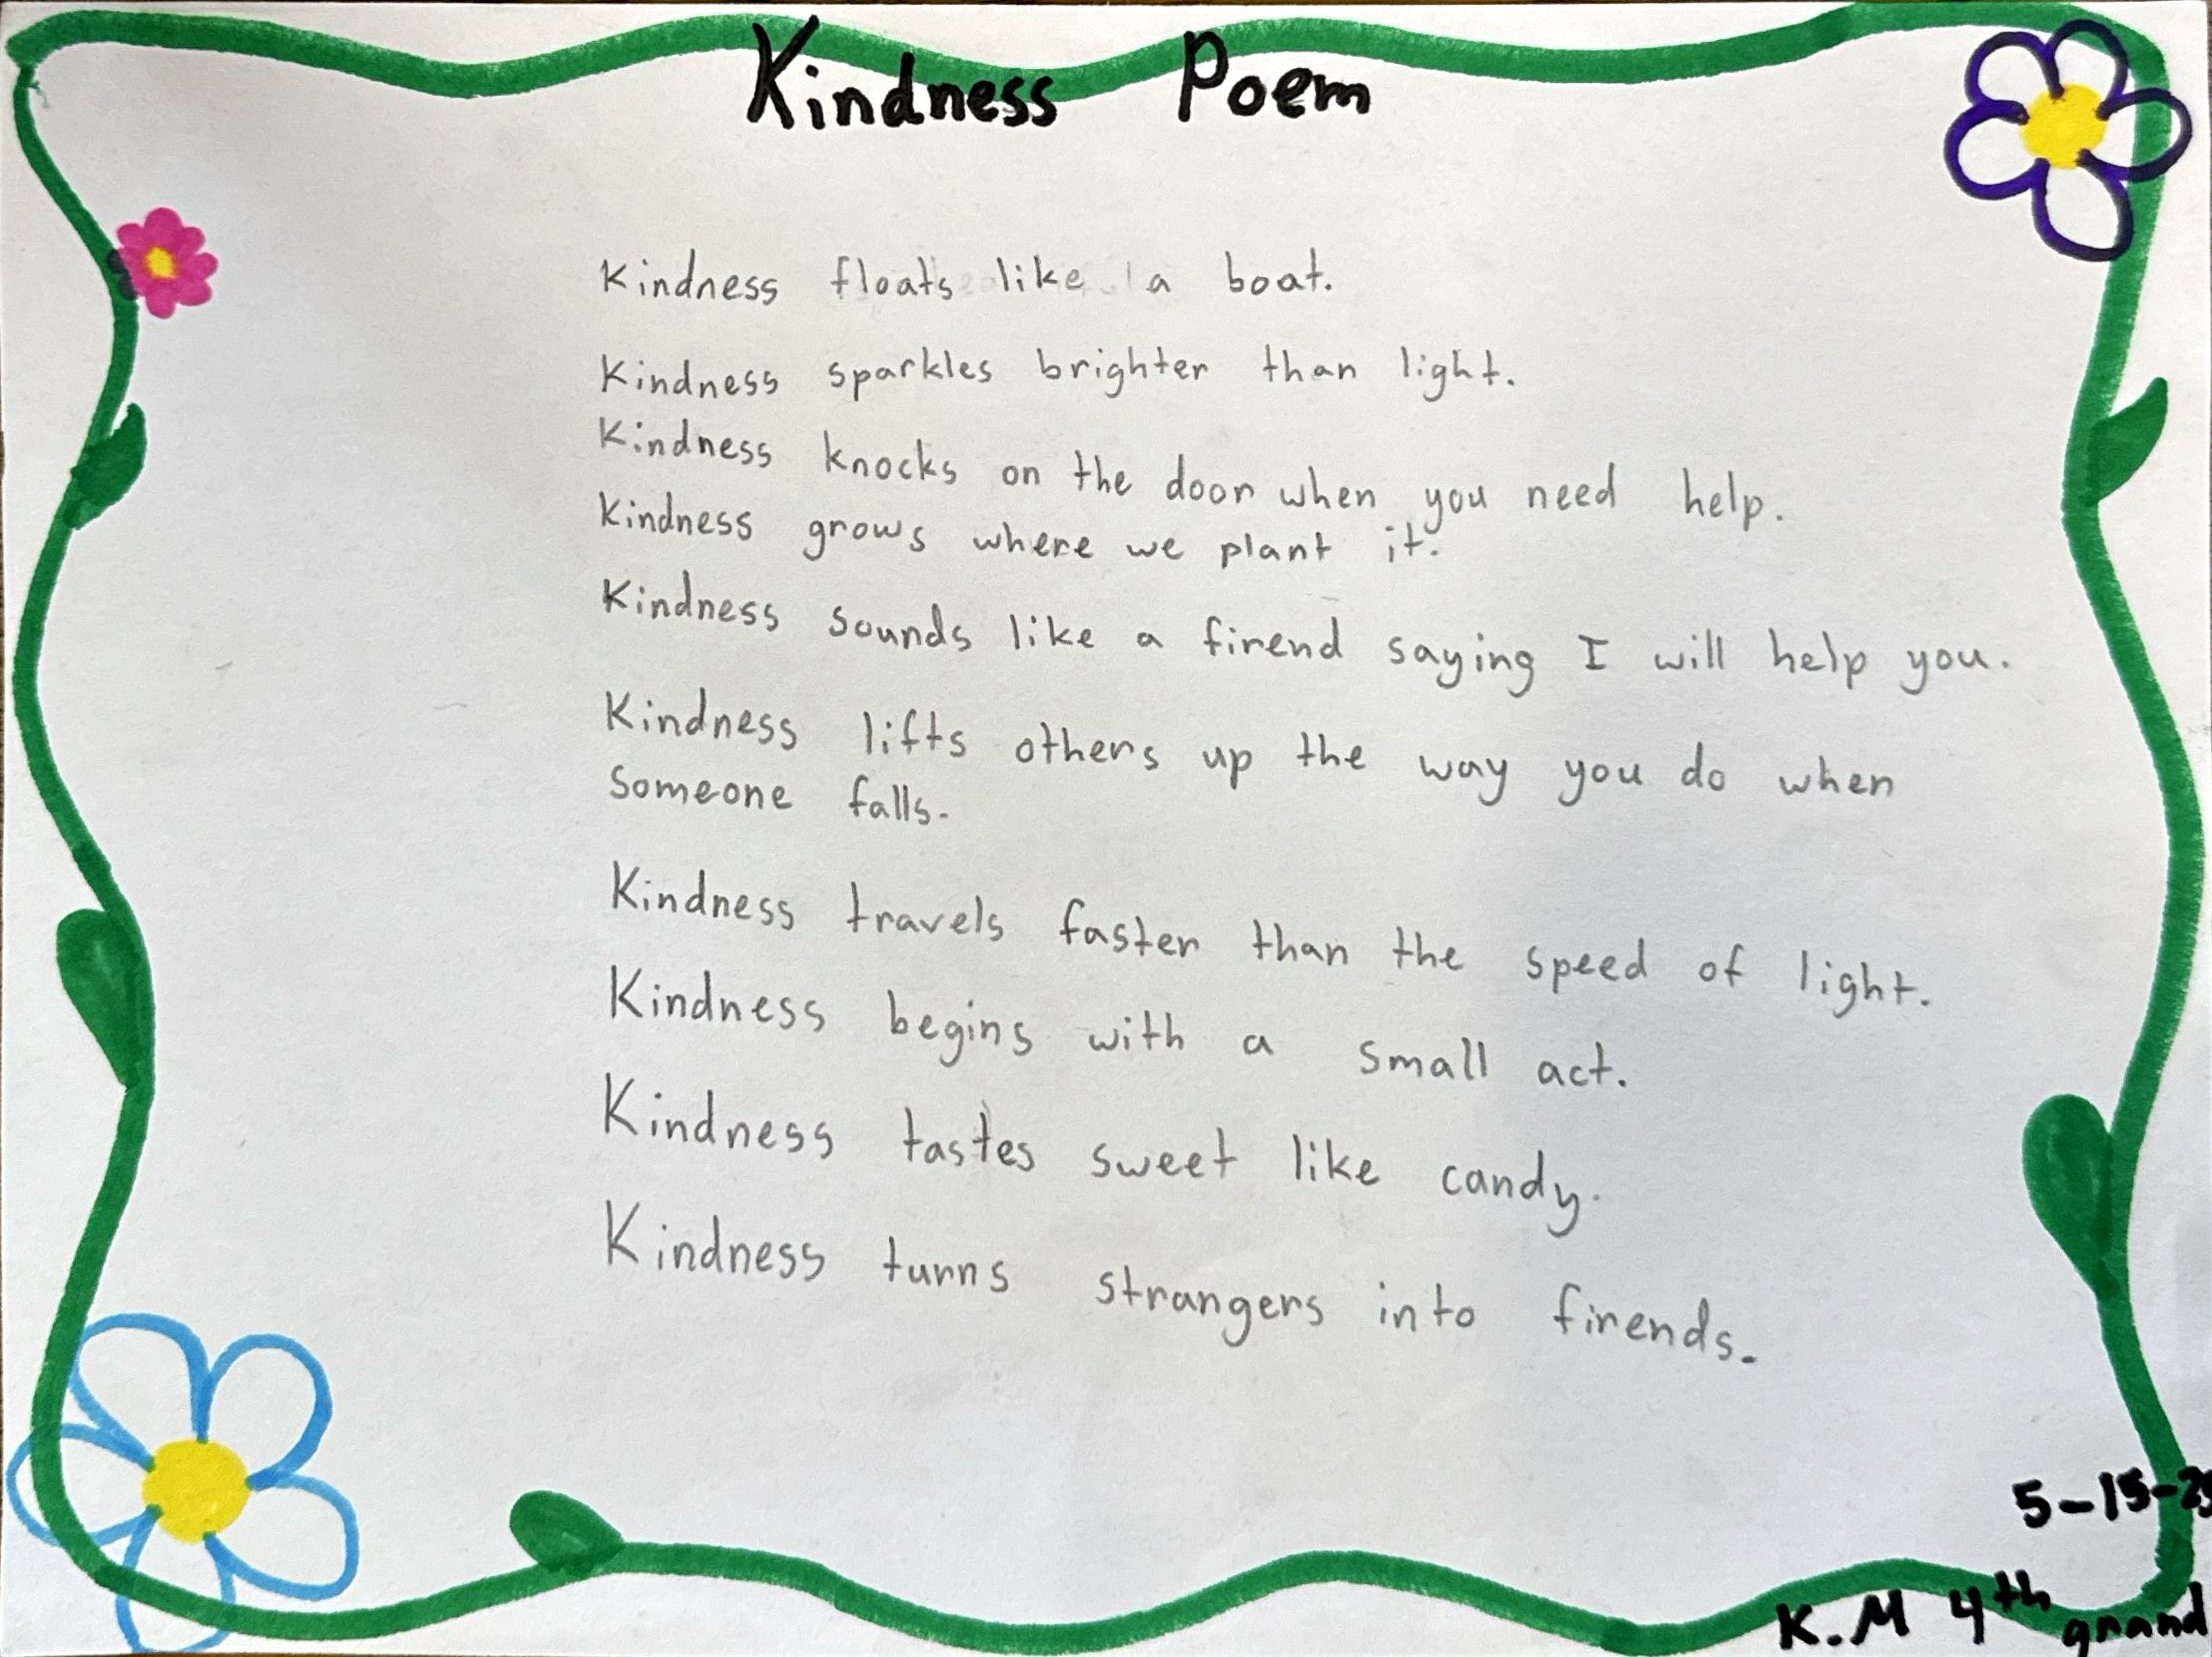 Kindness Poem
Kindness floats like a boat.
Kindness sparkles brighter than light.
Kindness knocks on the door when you need help.
Kindness grows where we plant it.
Kindness sounds like a firend saying I will help you.
Kindness lifts others up the way you do when
someone falls.
Kindness travels faster than the speed of light.
Kindness begins with a small act.
Kindness tastes sweet like candy.
Kindness turns strangers into firends.
5-15-25
K.M 4th grand